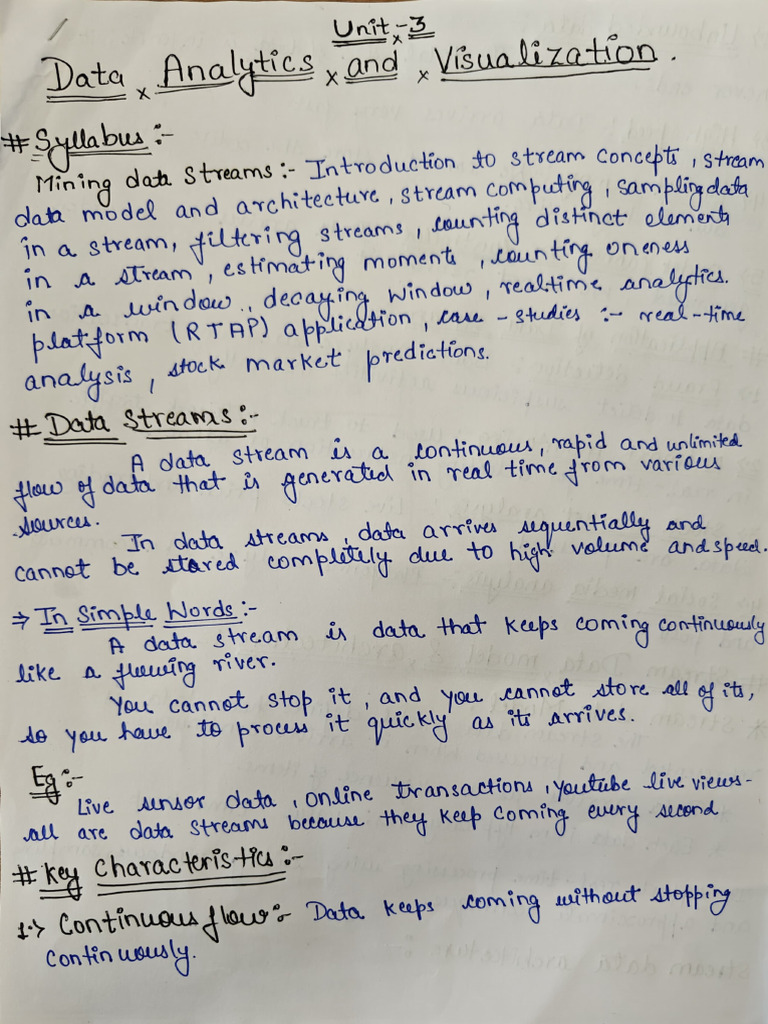 Unit-3
Data x Analytics x and x Visualization.
# Syllabus:-
Mining data streams:- Introduction to stream concepts, stream
data model and architecture, stream computing, sampling data
in a stream, filtering streams, counting distinct elements
in a stream, estimating moments, counting oneness
in a window, decaying window, realtime analytics.
platform (RTAP) application, case-studies :- real-time
analysis, stock market predictions.
# Data Streams:-
A data stream is a continuous, rapid and unlimited
flow of data that is generated in real time from various
sources.
In data streams, data arrives sequentially and
cannot be stored completely due to high volume and speed.
⇒ In Simple Words:-
A data stream is data that keeps coming continuously
like a flowing river.
You cannot stop it, and you cannot store all of its,
so you have to process it quickly as its arrives.
Eg:-
Live sensor data, online transactions, youtube live views-
all are data streams because they keep coming every second
# Key Characteristics:-
1.> Continuous flow:- Data keeps coming without stopping
continuously.